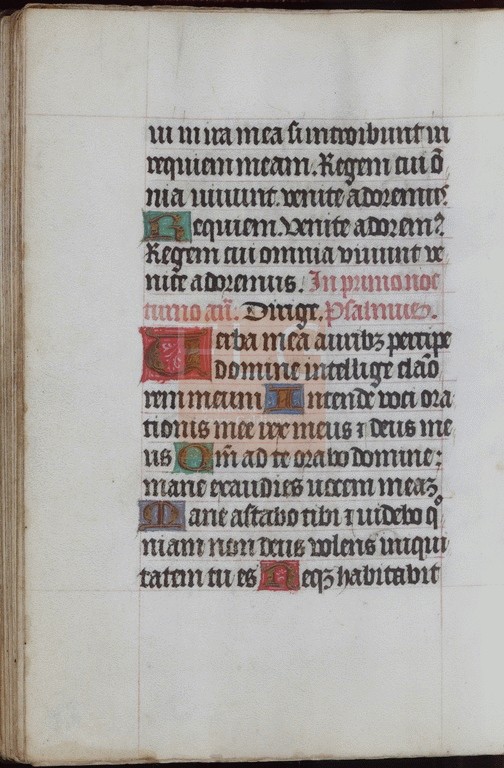 ui in ira mea si introibunt in
requiem meam. Regem cui õ
nia uiuunt. venite adoremus.
Requiem. Venite adorem⁹.
Regem cui omnia viuunt ve
nite adoremus. In primo noc
turno añ. Dirige. Psalmus.
Uerba mea aurib⁊ percipe
domine intellige clão
rem meum Intende voci ora
tionis mee rex meus ⁊ deus me
us Qm̃ ad te orabo domine:
mane exaudies uocem meaȝ
Mane astabo tibi ⁊ uidebo qͦ
niam non deus volens iniqui
tatem tu es Neqȝ habitabit